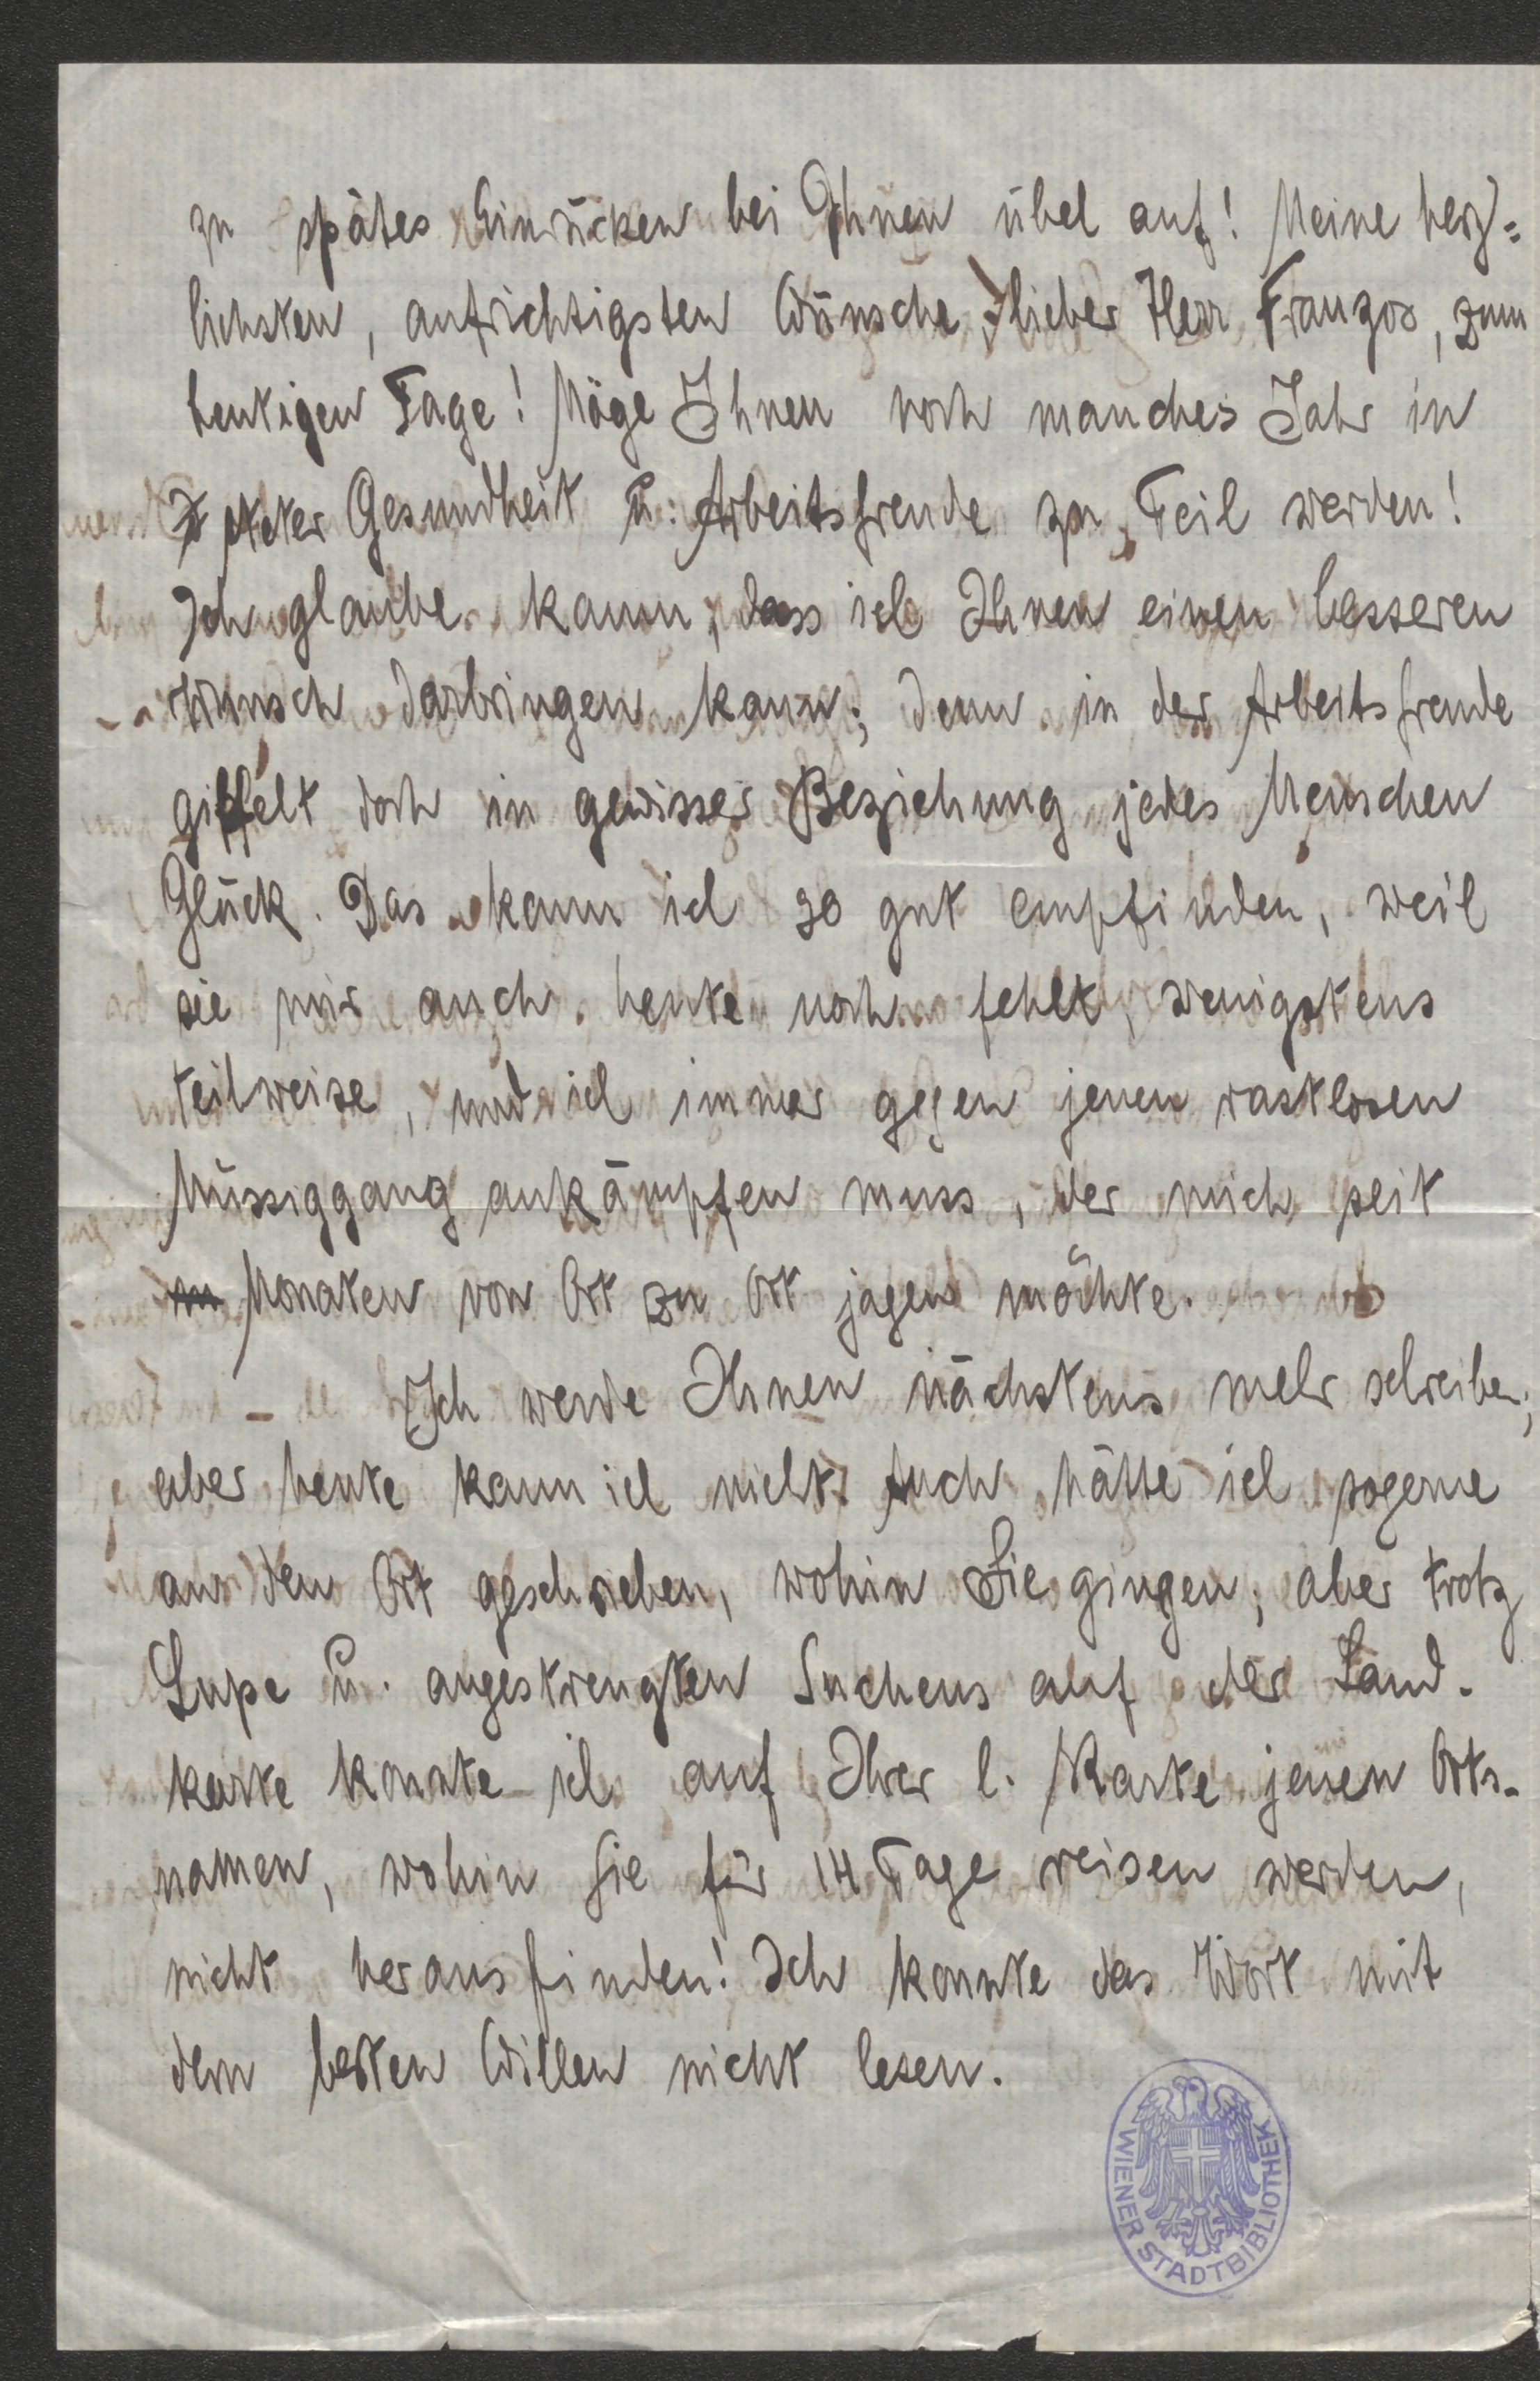 zu spätes Einrücken bei Ihnen übel auf! Meine herz=
lichsten, aufrichtigsten Wünsche, lieber Herr Franzos, zum
heutigen Tage! Möge Ihnen noch manches Jahr in
steter Gesundheit u. Arbeitsfreude zu Teil werden!
Ich glaube kaum, dass ich Ihnen einen besseren
Wunsch darbringen kann; denn in der Arbeitsfreude
gipfelt doch in gewisser Beziehung jedes Menschen
Glück. Das kann ich so gut empfinden, weil
sie mir auch heute noch fehlt, wenigstens
teilweise, und ich immer gegen jenen rastlosen
Müssiggang ankämpfen muss, der mich seit
Monaten von Ort zu Ort jagen möchte.
Ich werde Ihnen nächstens mehr schreiben;
aber heute kann ich nicht. Auch hätte ich sogerne
an den Ort geschrieben, wohin Sie gingen; aber trotz
Lupe u. angestrengten Suchens auf der Land-
karte konnte ich auf Ihrer l. Karte jenen Orts-
namen, wohin Sie für 14 Tage reisen werden,
nicht herausfinden! Ich konnte das Wort mit
dem besten Willen nicht lesen.
WIENER STADTBIBLIOTHEK